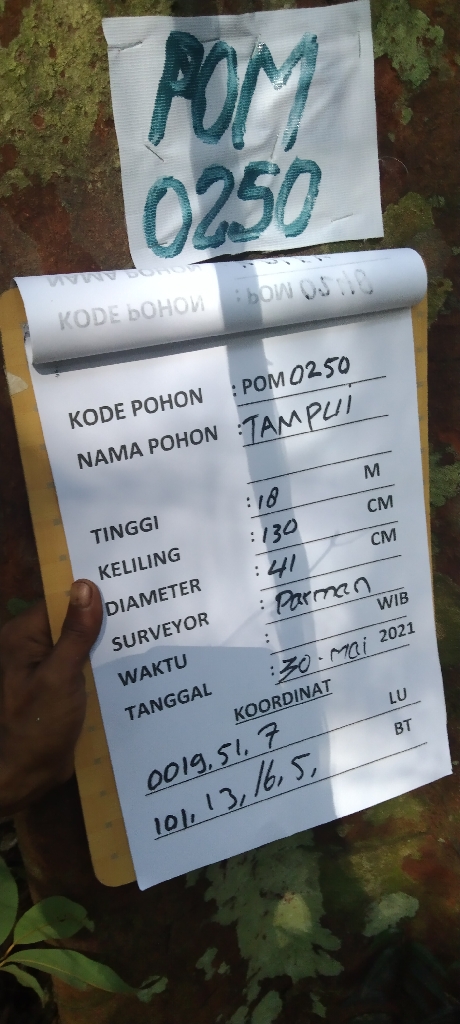 POM
0250
NAMA POHON
KODE POHON : POM 0248
KODE POHON : POM 0250
NAMA POHON : TAMPUI
TINGGI : 18 M
KELILING : 130 CM
DIAMETER : 41 CM
SURVEYOR : Parman
WAKTU : WIB
TANGGAL : 30 - Mai 2021
KOORDINAT
0019, 51, 7 LU
101, 13, 16, 5, BT